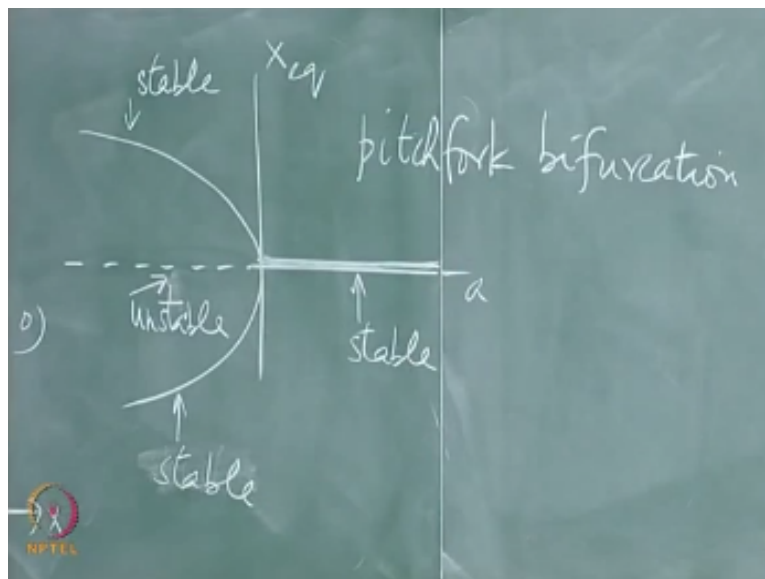 X_eq
stable
pitchfork bifurcation
0)
unstable
a
stable
stable
NPTEL